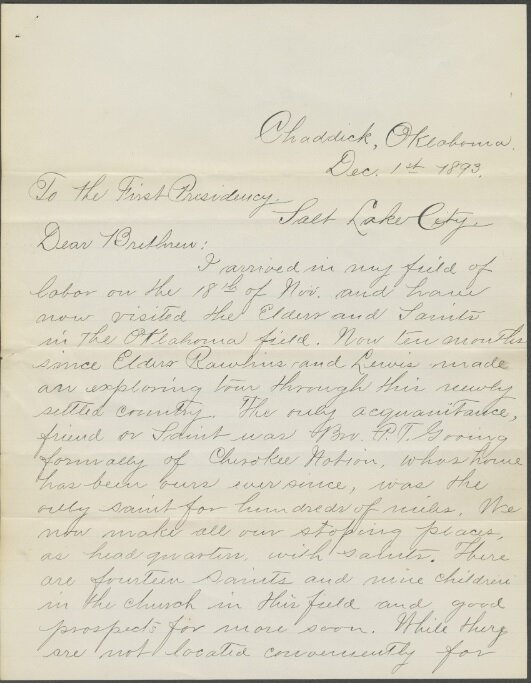 Chaddick, Oklahoma.
Dec. 1st 1893.
To the First Presidency.
Salt Lake City.
Dear Brethren:
I arrived in my field of
labor on the 18th of Nov. and have
now visited the Elders and Saints
in the Oklahoma field. Now ten months
since Elders Rawlins and Lewis made
an exploring tour through this newly
settled country. The only acquanitance,
friend or Saint was Bro. P.T. Gooing
formally of Cherokee Nation, whos home
has been ours ever since, was the
only saint for hundreds of miles. We
now make all our stoping places,
as head quarters, with saints. There
are fourteen saints and nine children
in the church in this field and good
prospects for more soon. While they
are not located conveniently for